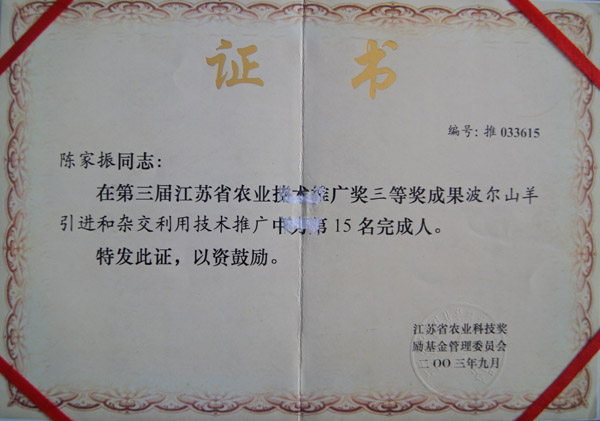 证书
编号：推 033615
陈家振同志：
在第三届江苏省农业技术推广奖三等奖成果波尔山羊
引进和杂交利用技术推广中为第 15 名完成人。
特发此证，以资鼓励。
江苏省农业科技奖
励基金管理委员会
二〇〇三年九月